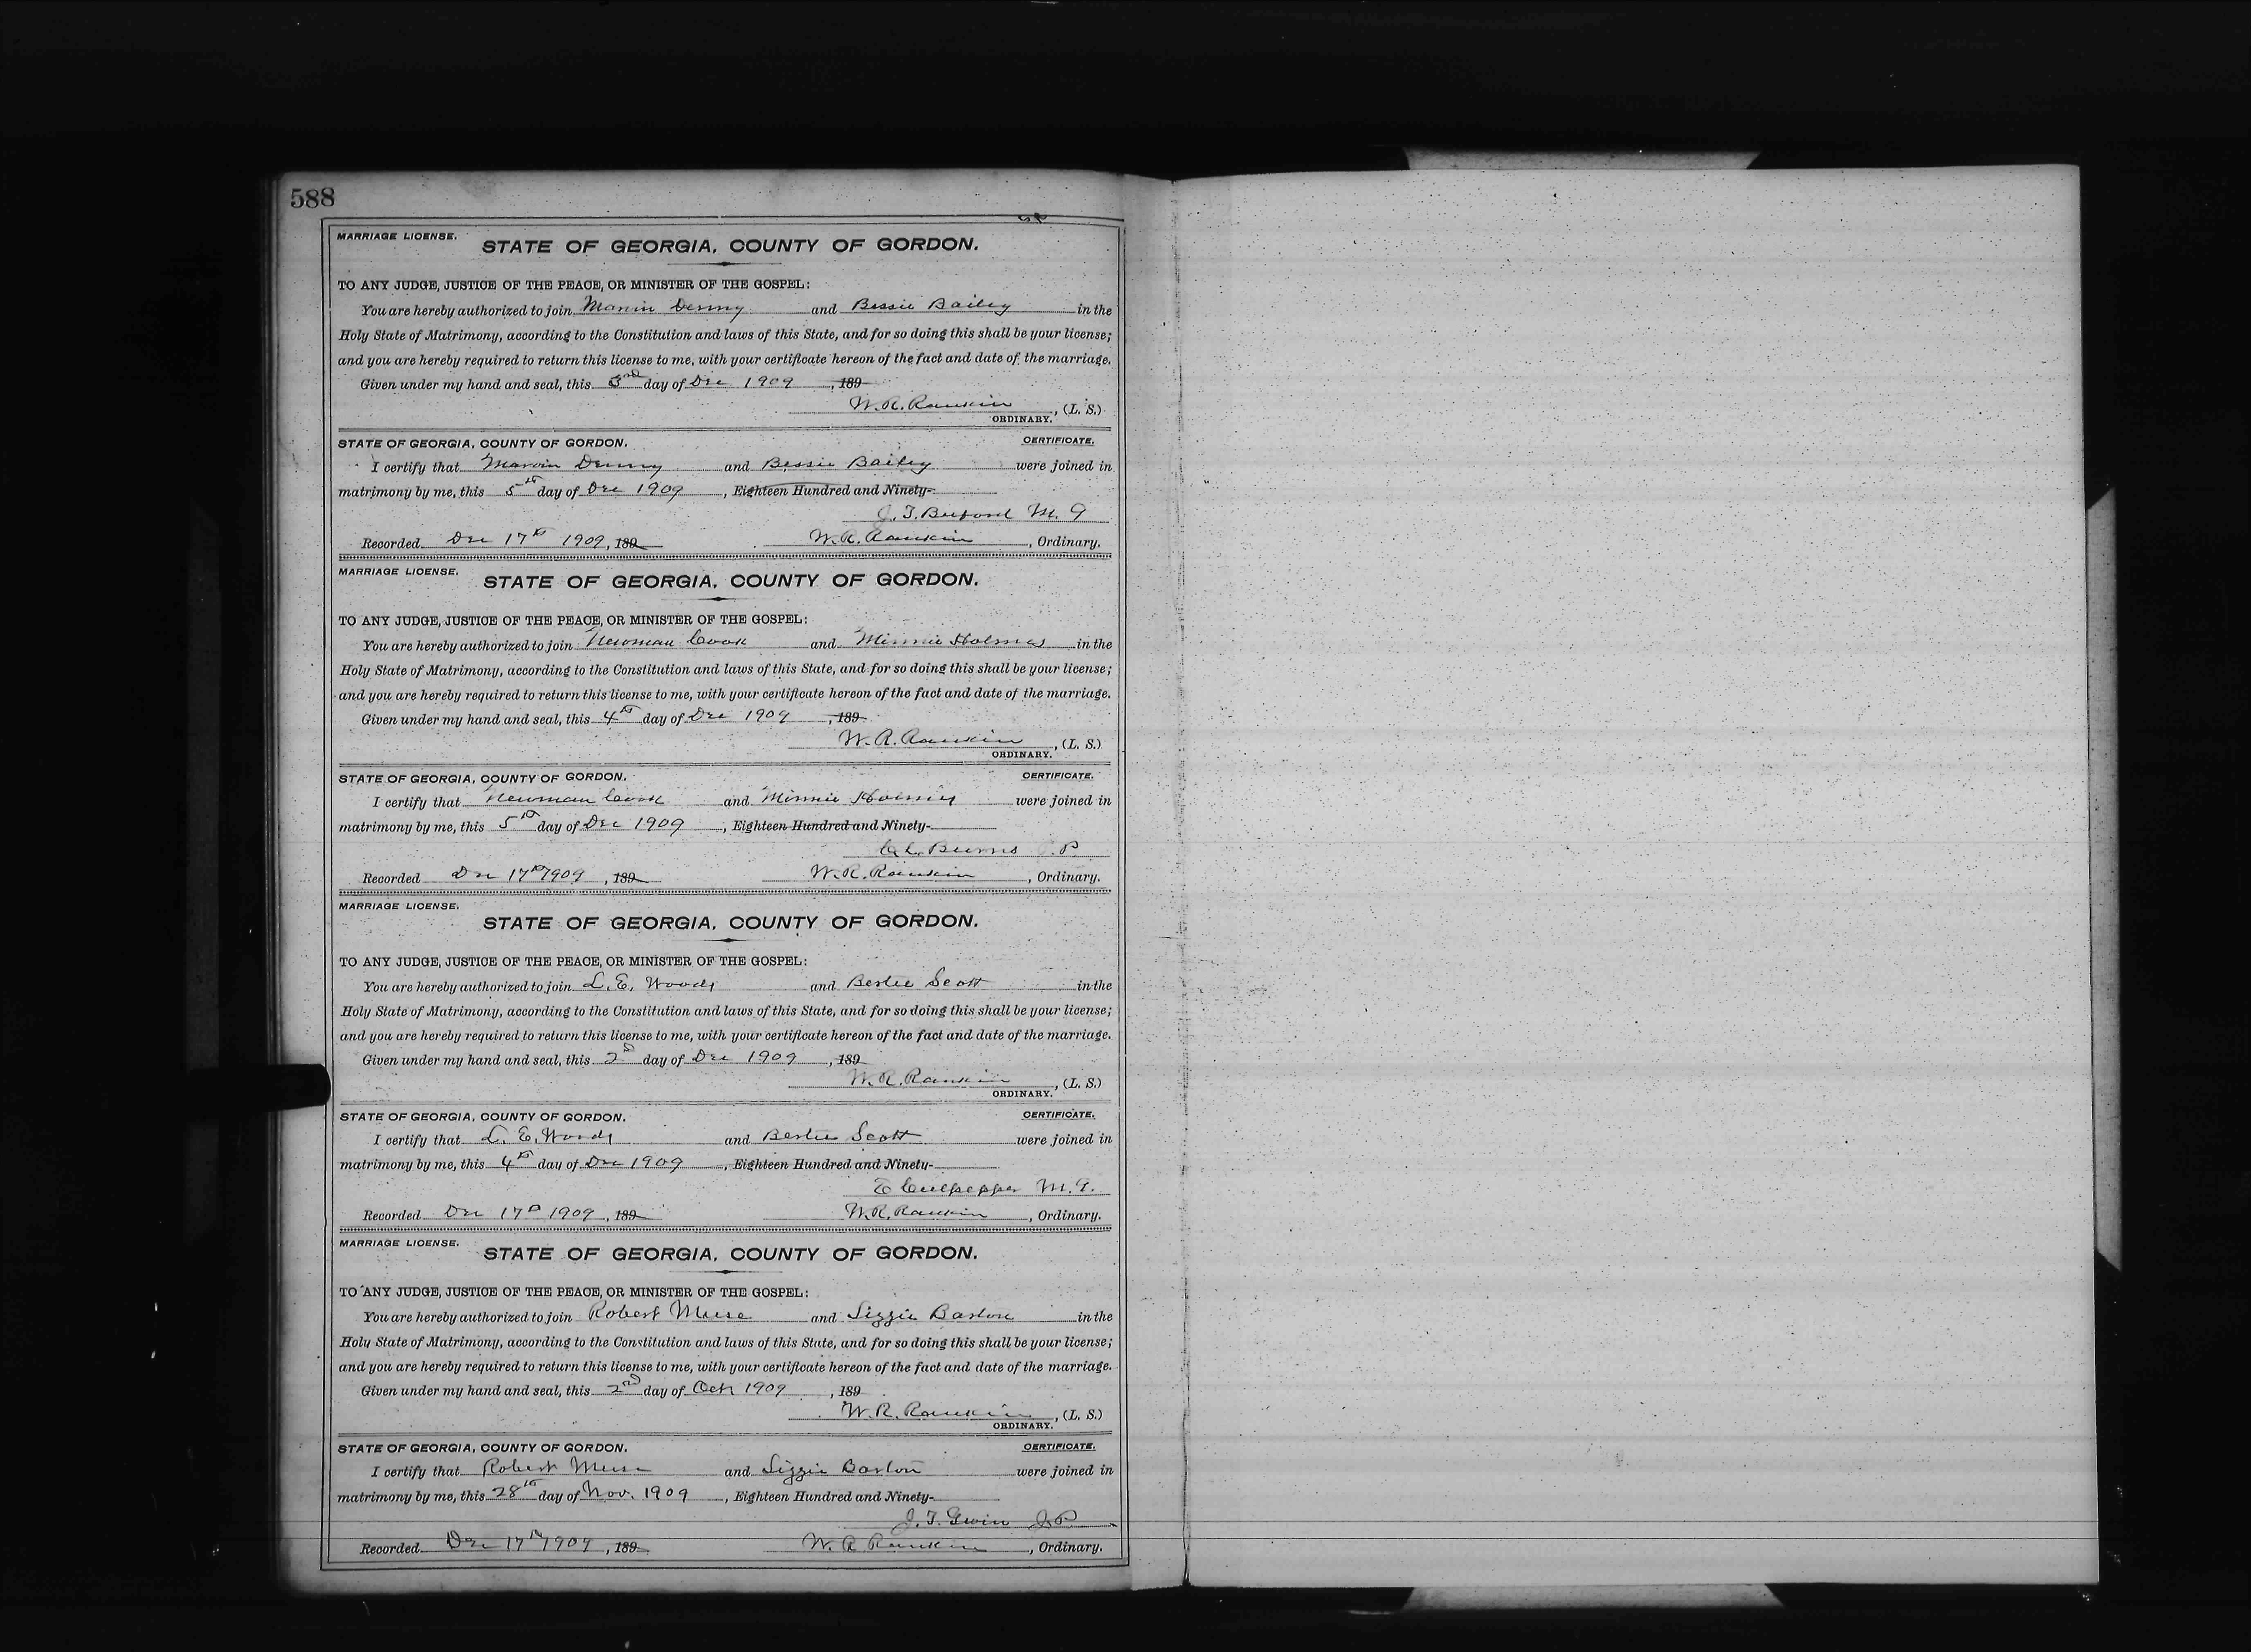 588
MARRIAGE LICENSE.
STATE OF GEORGIA, COUNTY OF GORDON.
TO ANY JUDGE, JUSTICE OF THE PEACE, OR MINISTER OF THE GOSPEL:
You are hereby authorized to join Marvin Denny and Bessie Bailey in the
Holy State of Matrimony, according to the Constitution and laws of this State, and for so doing this shall be your license;
and you are hereby required to return this license to me, with your certificate hereon of the fact and date of the marriage.
Given under my hand and seal, this 3rd day of Dec 1909, 189
W. R. Rankin, (L. S.)
ORDINARY.
STATE OF GEORGIA, COUNTY OF GORDON. CERTIFICATE.
I certify that Marvin Denny and Bessie Bailey were joined in
matrimony by me, this 5th day of Dec 1909, Eighteen Hundred and Ninety-
J. T. Buford M. G
Recorded Dec 17th 1909, 189 W. R. Rankin, Ordinary.
MARRIAGE LICENSE.
STATE OF GEORGIA, COUNTY OF GORDON.
TO ANY JUDGE, JUSTICE OF THE PEACE, OR MINISTER OF THE GOSPEL:
You are hereby authorized to join Newman Cook and Minnie Holmes in the
Holy State of Matrimony, according to the Constitution and laws of this State, and for so doing this shall be your license;
and you are hereby required to return this license to me, with your certificate hereon of the fact and date of the marriage.
Given under my hand and seal, this 4th day of Dec 1909, 189
W. R. Rankin, (L. S.)
ORDINARY.
STATE OF GEORGIA, COUNTY OF GORDON. CERTIFICATE.
I certify that Newman Cook and Minnie Holmes were joined in
matrimony by me, this 5th day of Dec 1909, Eighteen Hundred and Ninety-
Burns J. P.
Recorded Dec 17th 1909, 189 W. R. Rankin, Ordinary.
MARRIAGE LICENSE.
STATE OF GEORGIA, COUNTY OF GORDON.
TO ANY JUDGE, JUSTICE OF THE PEACE, OR MINISTER OF THE GOSPEL:
You are hereby authorized to join L. E. Woods and Bertie Scott in the
Holy State of Matrimony, according to the Constitution and laws of this State, and for so doing this shall be your license;
and you are hereby required to return this license to me, with your certificate hereon of the fact and date of the marriage.
Given under my hand and seal, this 2nd day of Dec 1909, 189
W. R. Rankin, (L. S.)
ORDINARY.
STATE OF GEORGIA, COUNTY OF GORDON. CERTIFICATE.
I certify that L. E. Woods and Bertie Scott were joined in
matrimony by me, this 4th day of Dec 1909, Eighteen Hundred and Ninety-
E Culpepper M. G.
Recorded Dec 17th 1909, 189 W. R. Rankin, Ordinary.
MARRIAGE LICENSE.
STATE OF GEORGIA, COUNTY OF GORDON.
TO ANY JUDGE, JUSTICE OF THE PEACE, OR MINISTER OF THE GOSPEL:
You are hereby authorized to join Robert Muse and Lizzie Barton in the
Holy State of Matrimony, according to the Constitution and laws of this State, and for so doing this shall be your license;
and you are hereby required to return this license to me, with your certificate hereon of the fact and date of the marriage.
Given under my hand and seal, this 2nd day of Oct 1909, 189
W. R. Rankin, (L. S.)
ORDINARY.
STATE OF GEORGIA, COUNTY OF GORDON. CERTIFICATE.
I certify that Robert Muse and Lizzie Barton were joined in
matrimony by me, this 28th day of Nov. 1909, Eighteen Hundred and Ninety-
J. T. Gwin J. P.
Recorded Dec 17th 1909, 189 W. R. Rankin, Ordinary.